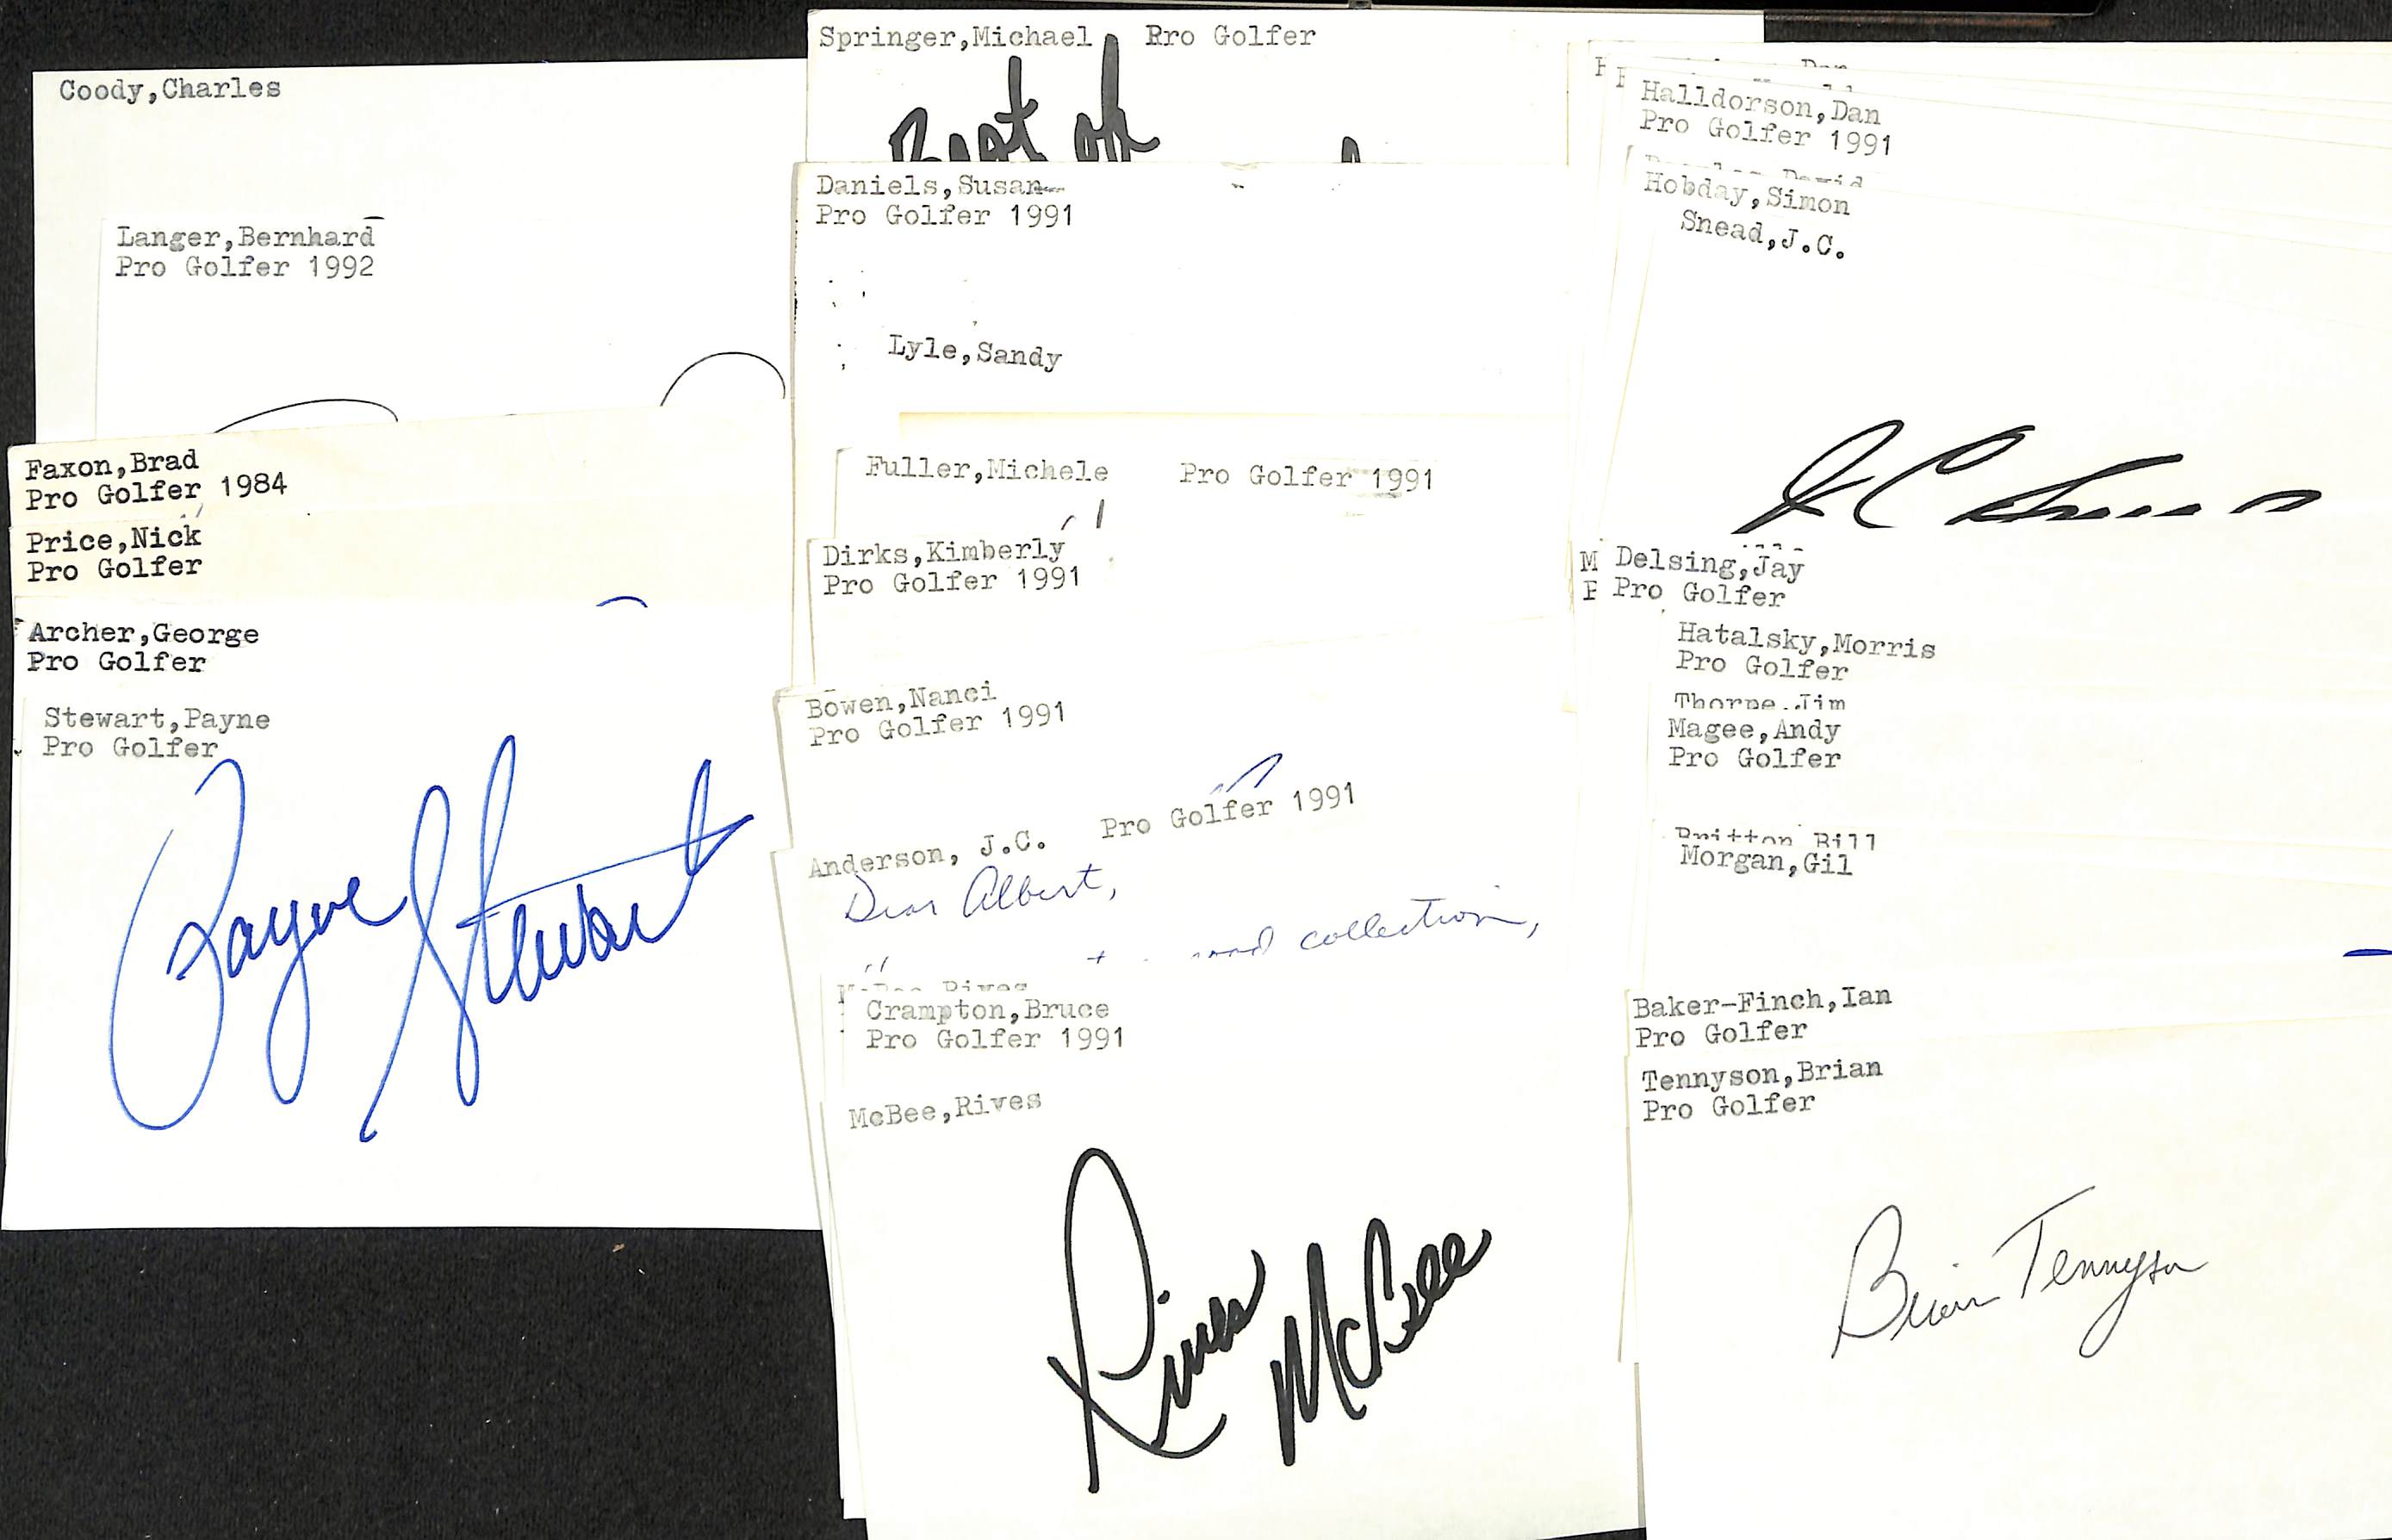 Coody,Charles
Langer,Bernhard
Pro Golfer 1992
Faxon,Brad
Pro Golfer 1984
Price,Nick
Pro Golfer
Archer,George
Pro Golfer
Stewart,Payne
Pro Golfer
Payne Stewart
Springer,Michael Rro Golfer
Best of
Daniels,Susan
Pro Golfer 1991
Lyle,Sandy
Fuller,Michele Pro Golfer 1991
Dirks,Kimberly
Pro Golfer 1991
Bowen,Nanci
Pro Golfer 1991
Anderson, J.C. Pro Golfer 1991
Dear Albert,
collection,
McBee,Rives
Crampton,Bruce
Pro Golfer 1991
McBee,Rives
Rives McBee
Dan
Halldorson,Dan
Pro Golfer 1991
David
Hobday,Simon
Snead,J.C.
J C Snead
M Delsing,Jay
P Pro Golfer
Hatalsky,Morris
Pro Golfer
Thorpe,Jim
Magee,Andy
Pro Golfer
Britton Bill
Morgan,Gil
Baker-Finch,Ian
Pro Golfer
Tennyson,Brian
Pro Golfer
Brian Tennyson